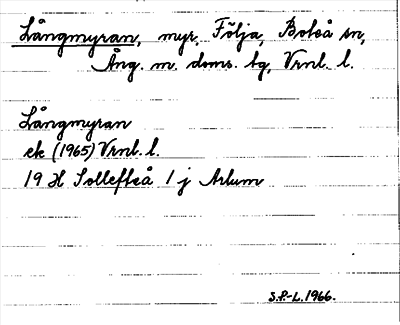 Långmyran, myr, Följa, Boteå sn,
Ång. m. doms. tg, Vrnl. l.
Långmyran
ek (1965) Vrnl. l.
19 H Sollefteå 1 j Arlum
S.P.-L. 1966.